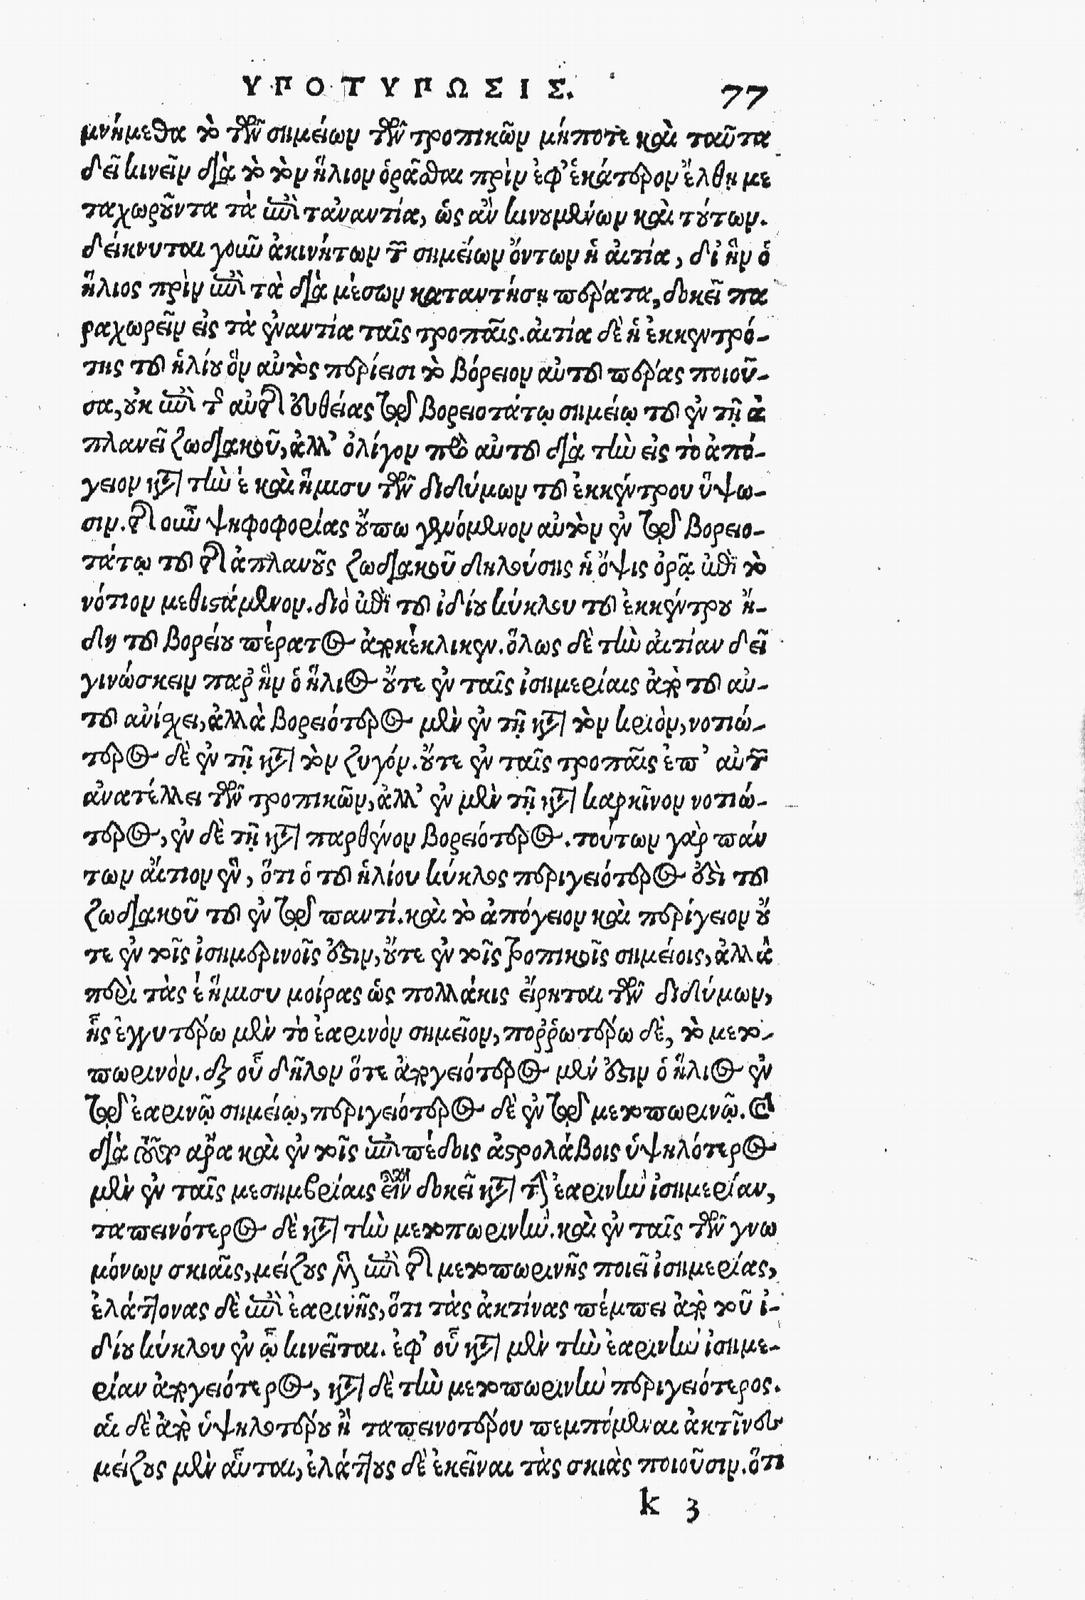 ΥΠΟΤΥΠΩΣΙΣ. 77
μνήμεθα τὸ τῶν σημείων τῶν τροπικῶν μήποτε καὶ ταῦτα
δεῖ κινεῖν διὰ τὸ τὸν ἥλιον ὁρᾶσθαι πρὶν ἐφ' ἑκάτερον ἔλθῃ με
ταχωροῦντα τὰ ἐπὶ τἀναντία, ὡς ἂν κινουμένων καὶ τούτων.
δείκνυται γοῦν ἀκινήτων τῶν σημείων ὄντων ἡ αἰτία, δι' ἣν ὁ
ἥλιος πρὶν ἐπὶ τὰ διὰ μέσων καταντήσῃ πέρατα, δοκεῖ πα
ραχωρεῖν εἰς τὰ ἐναντία ταῖς τροπαῖς. αἰτία δὲ ἡ ἐκκεντρό-
της τοῦ ἡλίου ὃν αὐτὸς περίεισι τὸ βόρειον αὐτοῦ πέρας ποιοῦ-
σα, οὐκ ἐπὶ τῆς αὐτῆς εὐθείας τῷ βορειοτάτῳ σημείῳ τοῦ ἐν τῇ ἀ
πλανεῖ ζωδιακοῦ, ἀλλ' ὀλίγον πρὸ αὐτοῦ διὰ τὴν εἰς τὸ ἀπό-
γειον κατὰ τὴν ε καὶ ἥμισυ τῶν διδύμων τοῦ ἐκκέντρου ὕψω-
σιν. τῆς οὖν ψηφοφορίας οὔπω γενόμενον αὐτὸν ἐν τῷ βορειο-
τάτῳ τοῦ τῆς ἀπλανοῦς ζωδιακοῦ δηλούσης ἡ ὄψις ὁρᾷ ἐπὶ τὸ
νότιον μεθιστάμενον. διὸ ἐπὶ τοῦ ἰδίου κύκλου τοῦ ἐκκέντρου ἤ-
δη τοῦ βορείου πέρατος ἀποκέκλικεν. ὅλως δὲ τὴν αἰτίαν δεῖ
γινώσκειν παρ' ἣν ὁ ἥλιος οὔτε ἐν ταῖς ἰσημερίαις ἀπὸ τοῦ αὐ-
τοῦ ἀνίσχει, ἀλλὰ βορειότερος μὲν ἐν τῇ κατὰ τὸν κριὸν, νοτιώ-
τερος δὲ ἐν τῇ κατὰ τὸν ζυγόν. οὔτε ἐν ταῖς τροπαῖς ἐπ' αὐτῶν
ἀνατέλλει τῶν τροπικῶν, ἀλλ' ἐν μὲν τῇ κατὰ καρκῖνον νοτιώ-
τερος, ἐν δὲ τῇ κατὰ παρθένον βορειότερος. τούτων γὰρ πάν
των αἴτιον ἓν, ὅτι ὁ τοῦ ἡλίου κύκλος περιγειότερος ἐστὶ τοῦ
ζωδιακοῦ τοῦ ἐν τῷ παντί. καὶ τὸ ἀπόγειον καὶ περίγειον οὔ
τε ἐν τοῖς ἰσημερινοῖς ἐστιν, οὔτε ἐν τοῖς τροπικοῖς σημείοις, ἀλλὰ
περὶ τὰς ε ἥμισυ μοίρας ὡς πολλάκις εἴρηται τῶν διδύμων,
ἧς ἐγγυτέρω μὲν τὸ ἐαρινὸν σημεῖον, πορῤῥωτέρω δὲ, τὸ μετο-
πωρινὸν. ἐξ οὗ δῆλον ὅτε ἀπογειότερος μέν ἐστιν ὁ ἥλιος ἐν
τῷ ἐαρινῷ σημείῳ, περιγειότερος δὲ ἐν τῷ μετοπωρινῷ. καὶ
διὰ τοῦτο ἄρα καὶ ἐν τοῖς ἐπιπέδοις ἀστρολάβοις ὑψηλότερος
μὲν ἐν ταῖς μεσημβρίαις εἶναι δοκεῖ κατὰ τὴν ἐαρινὴν ἰσημερίαν,
ταπεινότερος δὲ κατὰ τὴν μετοπωρινὴν. καὶ ἐν ταῖς τῶν γνω
μόνων σκιαῖς, μείζους μὲν ἐπὶ τῆς μετοπωρινῆς ποιεῖ ἰσημερίας,
ἐλάττονας δὲ ἐπὶ ἐαρινῆς, ὅτι τὰς ἀκτίνας πέμπει ἀπὸ τοῦ ἰ-
δίου κύκλου ἐν ᾧ κινεῖται. ἐφ' οὗ κατὰ μὲν τὴν ἐαρινὴν ἰσημε-
ρίαν ἀπογειότερος, κατὰ δὲ τὴν μετοπωρινὴν περιγειότερος.
αἱ δὲ ἀπὸ ὑψηλοτέρου ἢ ταπεινοτέρου πεμπόμεναι ἀκτῖνες
μείζους μὲν αὗται, ἐλάττους δὲ ἐκεῖναι τὰς σκιὰς ποιοῦσιν. ὅτι
k 3